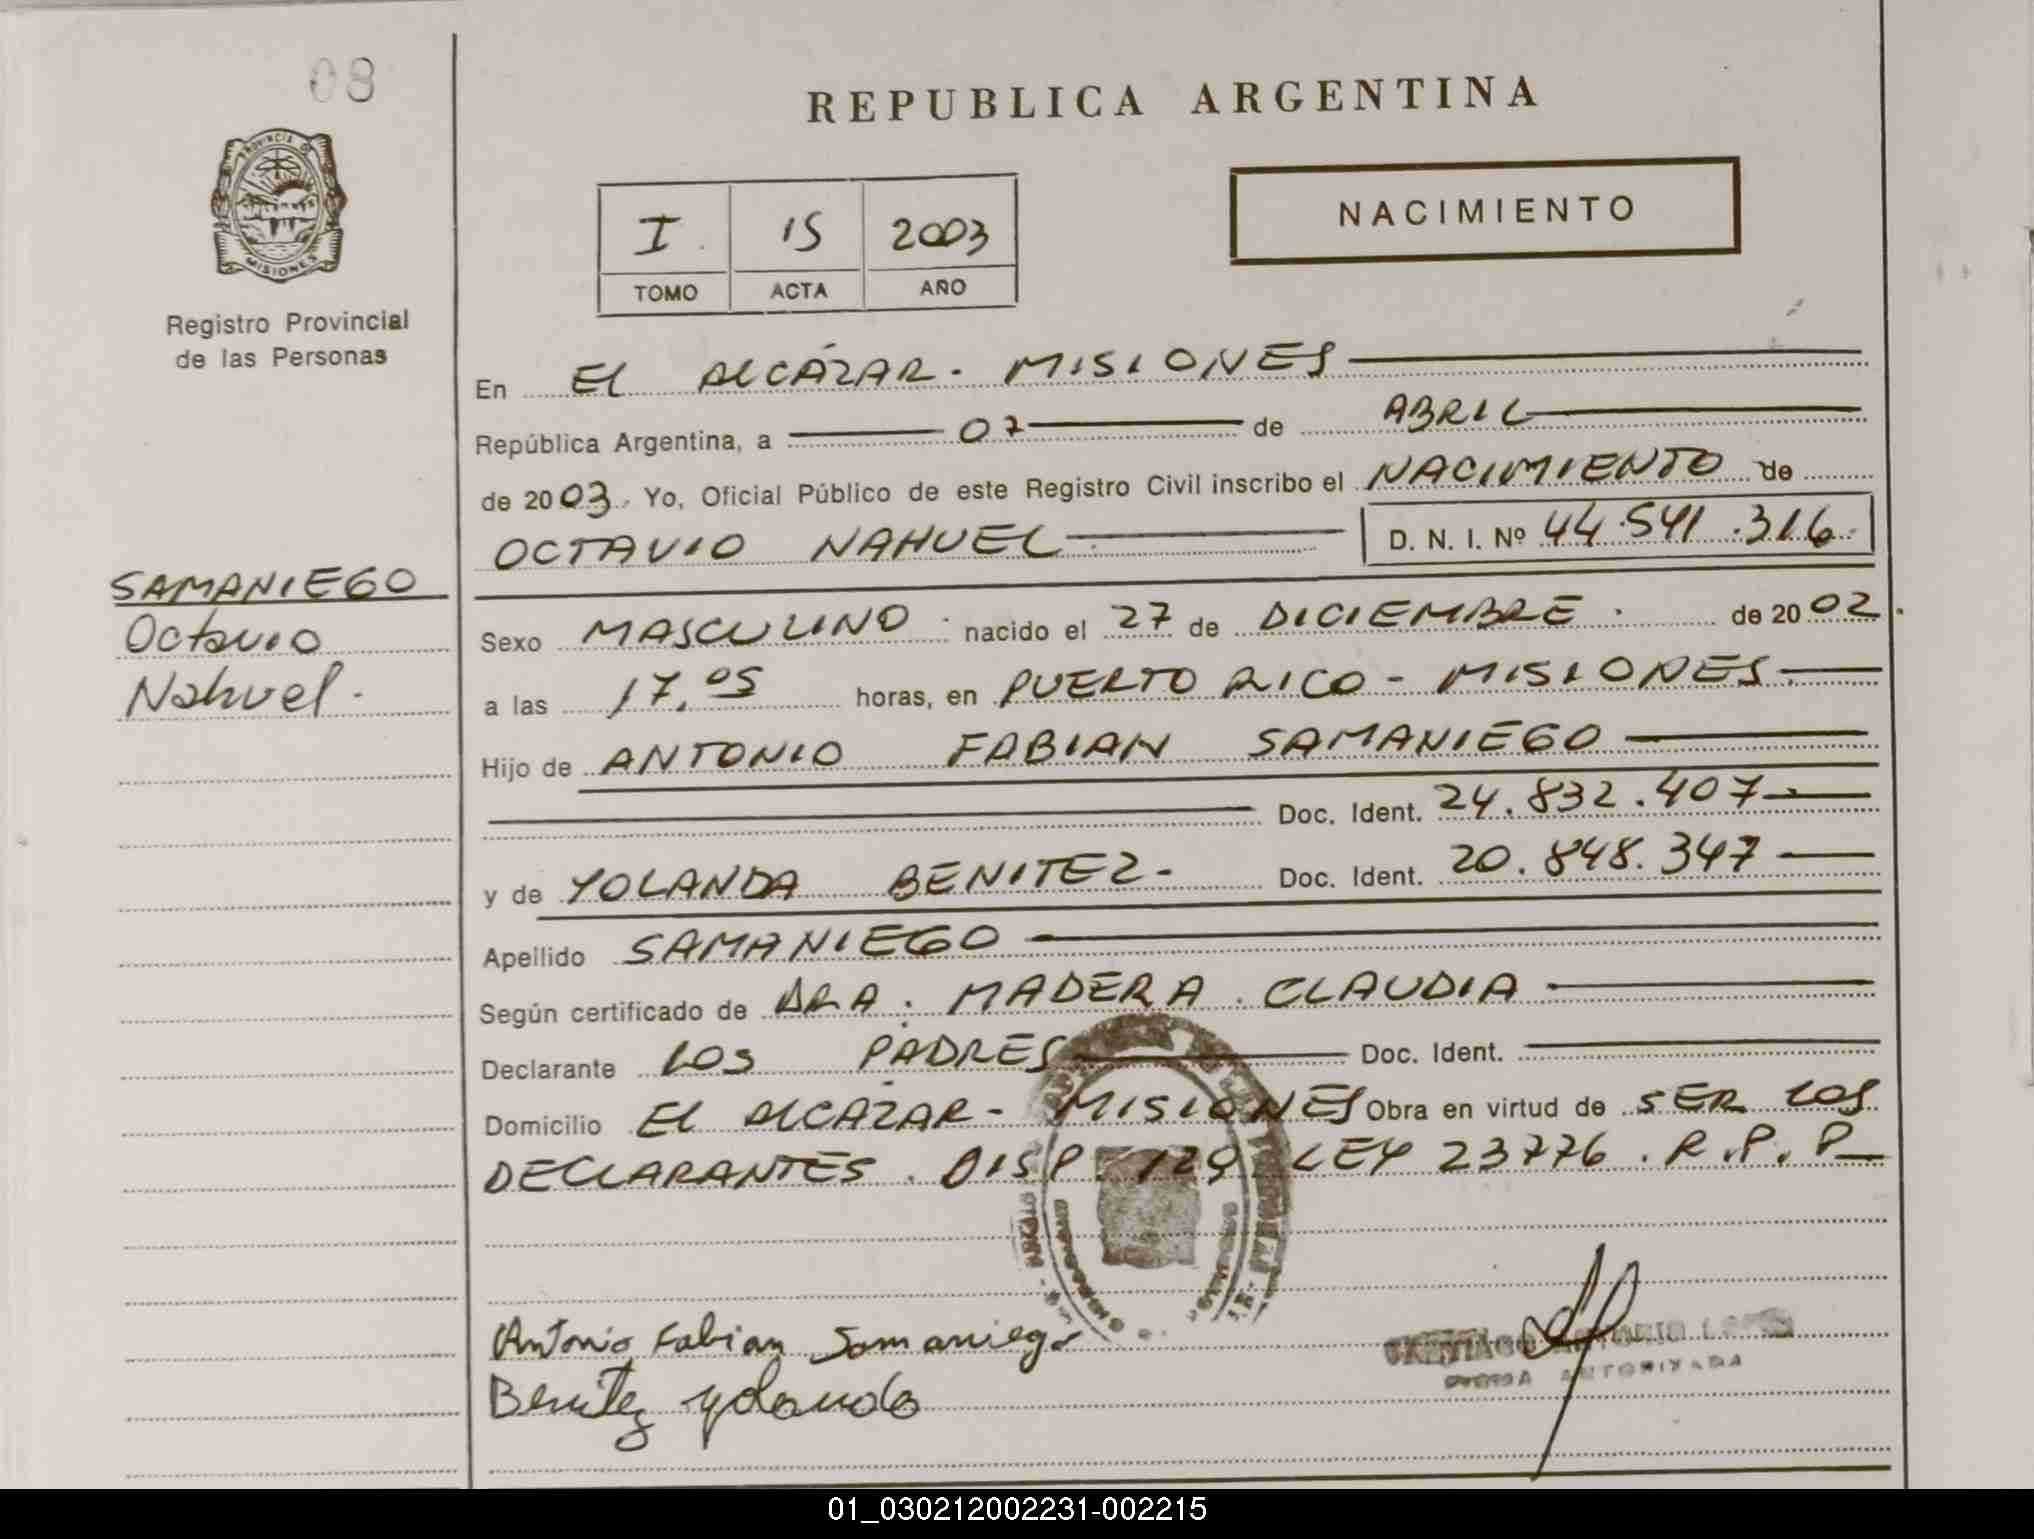 08
REPUBLICA ARGENTINA
PROVINCIA DE
MISIONES
Registro Provincial
de las Personas
I 15 2003
TOMO ACTA AÑO
NACIMIENTO
En EL ALCÁZAR. MISIONES
República Argentina, a 07 de ABRIL
de 2003. Yo, Oficial Público de este Registro Civil inscribo el NACIMIENTO de
OCTAVIO NAHUEL D. N. I. Nº 44.541.316.
SAMANIEGO
Octavio
Nahuel.
Sexo MASCULINO. nacido el 27 de DICIEMBRE. de 2002.
a las 17.05 horas, en PUERTO RICO - MISIONES
Hijo de ANTONIO FABIAN SAMANIEGO
Doc. Ident. 24.832.407
y de YOLANDA BENITEZ- Doc. Ident. 20.848.347
Apellido SAMANIEGO
Según certificado de DRA. MADERA. CLAUDIA
Declarante LOS PADRES Doc. Ident.
Domicilio EL ALCAZAR- MISIONES Obra en virtud de SER LOS
DECLARANTES. DISP. 129 LEY 23776. R.P.P
Antonio Fabian Samaniego
Benitez yolanda
SANTIAGO ANTONIO
AUTORIZADA
01_030212002231-002215